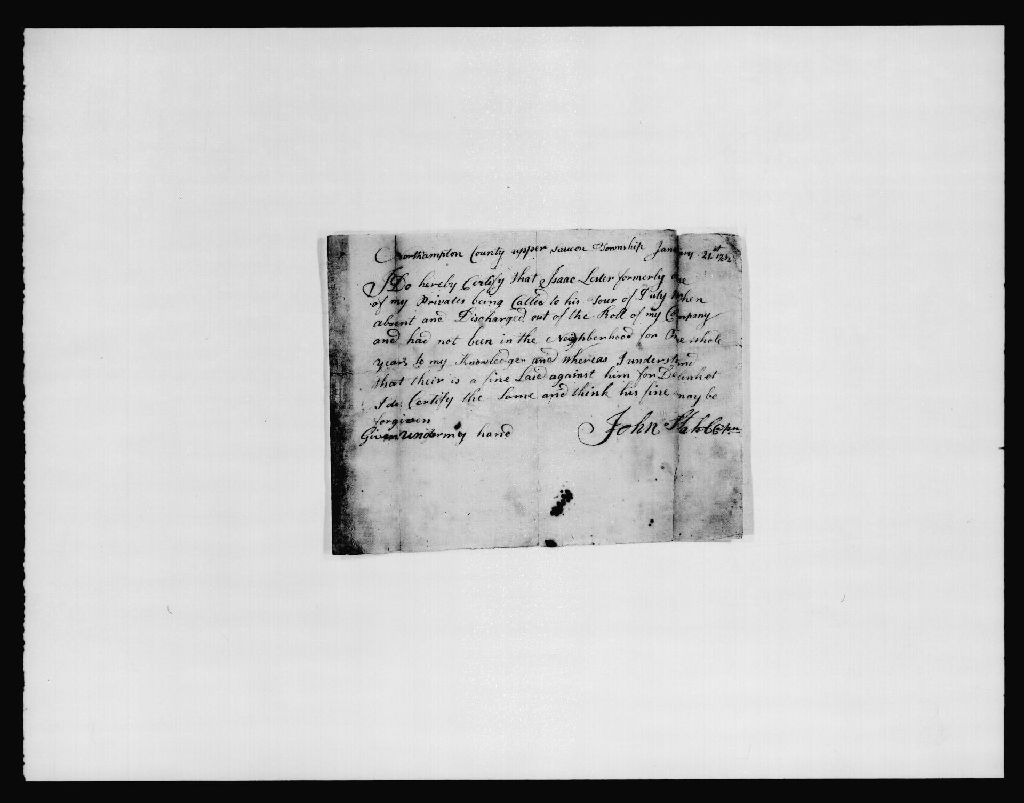 Northampton County upper saucon Township January 21st
I Do hereby Certify that Isaac Lester formerly one
of my Privates being Called to his Tour of Duty When
absent and Discharged out of the Roll of my Company
and had not been in the Neighberhood for One whole
year to my Knowledge and whereas I understand
that their is a fine Laid against him for
I do Certify the Same and think his fine may be
forgiven
Given under my hand
John